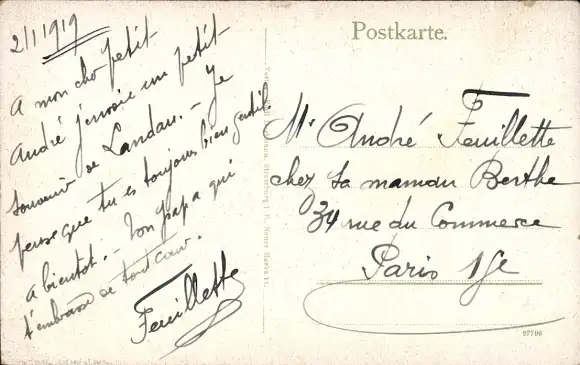 2/1 1919
A mon cho petit
André j'envoie un petit
souvenir de Landau. - Je
pense que tu es toujours bien gentil.
A bientôt. - Ton papa qui
t'embrasse de tout cœur.
Feuillette
Postkarte.
Mr André Feuillette
chez sa maman Berthe
34 rue du Commerce
Paris 15e
97796